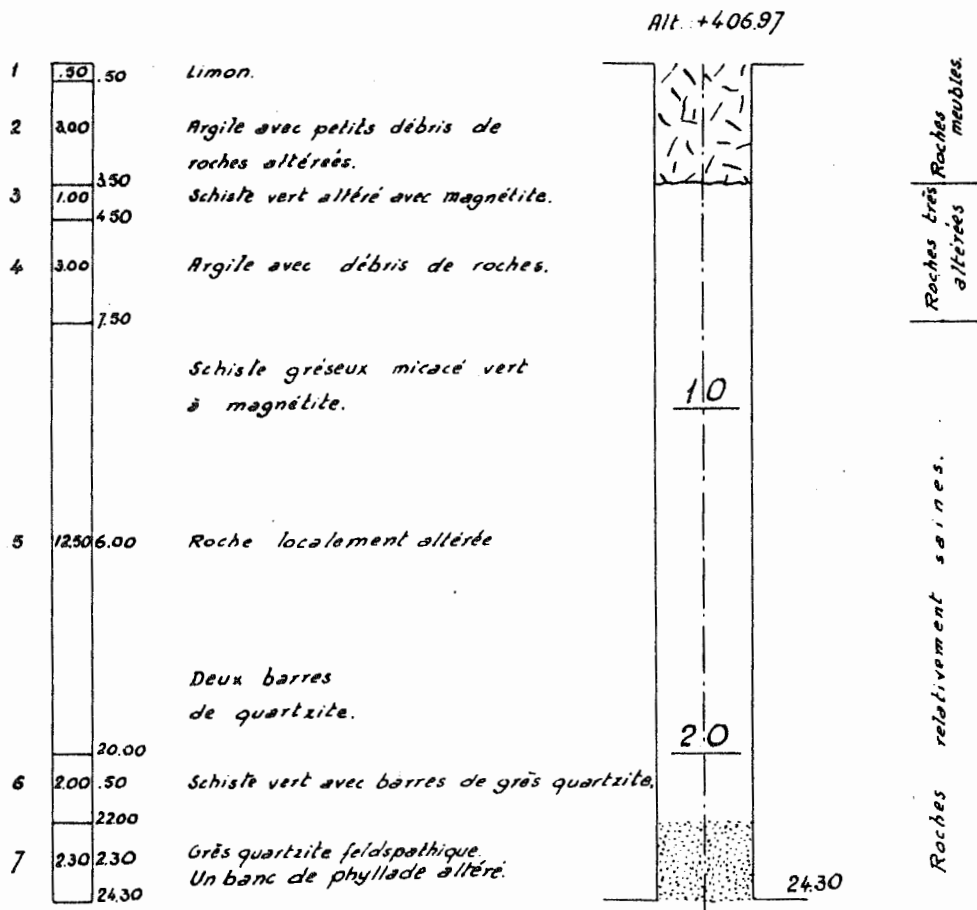 Alt. +406.97
1 .50 .50 Limon.
2 3.00 Argile avec petits débris de
roches altérées.
3.50
3 1.00 Schiste vert altéré avec magnétite.
4 50
4 3.00 Argile avec débris de roches.
7.50
Schiste gréseux micacé vert
à magnétite.
10
5 12.50 6.00 Roche localement altérée
Deux barres
de quartzite.
20.00
20
6 2.00 .50 Schiste vert avec barres de grès quartzite.
22.00
7 2.30 2.30 Grès quartzite feldspathique.
Un banc de phyllade altéré.
24.30
24.30
Roches
meubles.
Roches très
altérées
Roches relativement saines.